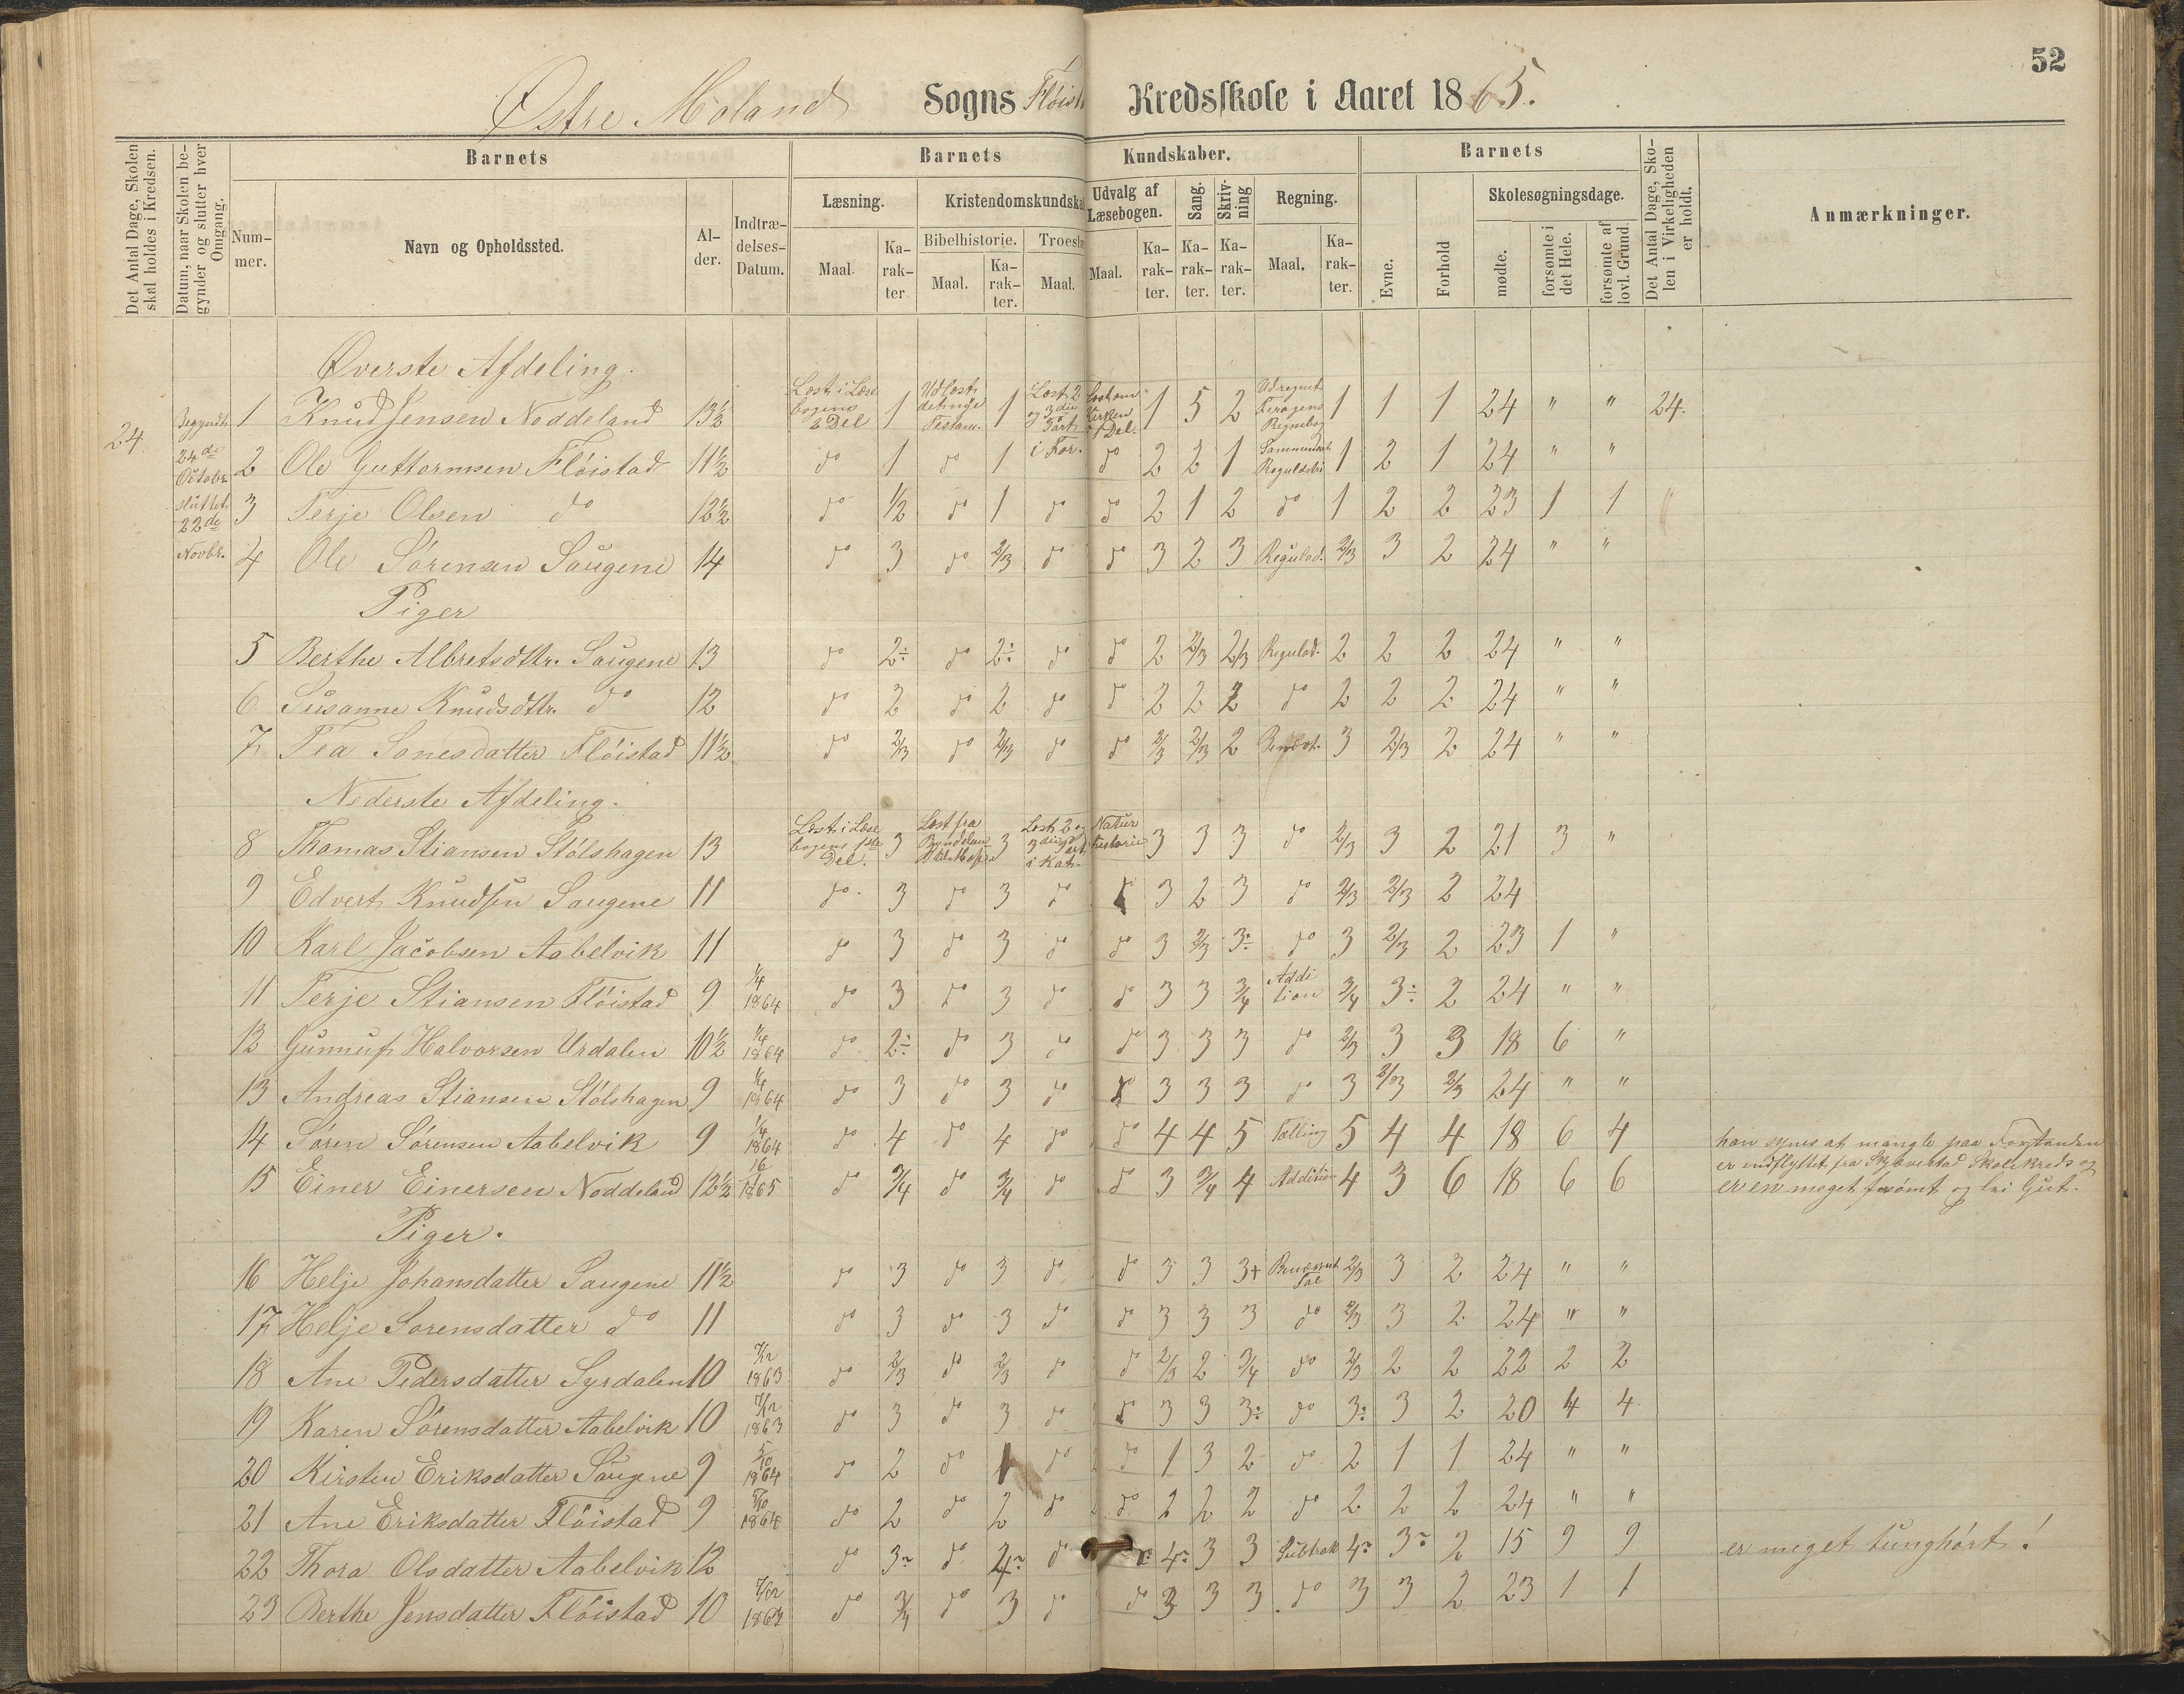 52
Østre Moland Sogns Flöist Kredsskole i Aaret 1865.
Det Antal Dage, Skolen skal holdes i Kredsen.
Datum, naar Skolen begynder og slutter hver Omgang.
Barnets
Barnets Kundskaber.
Barnets
Det Antal Dage, Skolen i Virkeligheden er holdt.
Anmærkninger.
Nummer.
Navn og Opholdssted.
Alder.
Indtrædelses-Datum.
Læsning.
Kristendomskundska
Udvalg af Læsebogen.
Sang.
Skrivning
Regning.
Evne.
Forhold
Skolesøgningsdage.
Bibelhistorie.
Troesl
Maal.
Karakter
Maal.
Karakter.
Maal.
Maal.
Karakter.
Karakter.
Karakter.
Maal.
Karakter.
mødte.
forsømte i det Hele.
forsømte af lovl. Grund.
Øverste Afdeling.
24 Begyndt 24de Octobr. sluttet 22de Novbr.
1 Knud Jensen Noddeland 13½ Læst i Læsebogens 2 Del 1 Udlæst det nye Testam. 1 Læst 2 og 3die Part i For. Læst om Verken 1 Del. 1 5 2 Udregnet Regnebog 1 1 1 24 " " 24.
2 Ole Guttormsen Flöistad 11½ do 1 do 1 do 2 2 1 Sammensat Reguladetri 1 2 1 24 " "
3 Terje Olsen do 12½ do ½ do 1 do do 2 1 2 do 1 2 2 23 1 1
4 Ole Sörensen Saugene 14 do 3 do 2/3 do do 3 2 3 Regulad. 2/3 3 2 24 " "
Piger
5 Berthe Albretsdttr. Saugene 13 do 2÷ do 2÷ do do 2 2/3 2/3 Regulad. 2 2 2 24 " "
6 Susanne Knudsdttr. do 12 do 2 do 2 do do 2 2 2 do 2 2 2 24 " "
7 Tea Sonesdatter Flöistad 11½ do 2/3 do 2/3 do do 2/3 2/3 2 3 2/3 2 24 " "
Nederste Afdeling.
8 Thomas Stiansen Stölshagen 13 Læst i Læsebogens 1ste Del. 3 Læst fra 3 Læst 2 og 3die Part i Kat. Natur historie 3 3 3 do 2/3 3 2 21 3 "
9 Edvert Knudsen Saugene 11 do. 3 do 3 do 3 2 3 do 2/3 2/3 2 24
10 Karl Jacobsen Aabelvik 11 do 3 do 3 do do 3 2/3 3÷ do 3 2/3 2 23 1 "
11 Terje Stiansen Flöistad 9 1/4 1864 do 3 do 3 do do 3 3 3/4 Addition 3/4 3÷ 2 24 " "
12 Gunnuf Halvorsen Urdalen 10½ 1/4 1864 do 2÷ do 3 do do 3 3 3 do 2/3 3 3 18 6 "
13 Andreas Stiansen Stölshagen 9 1/4 1864 do 3 do 3 do do 3 3 3 do 3 2/3 2/3 24 " "
14 Sören Sörensen Aabelvik 9 1/4 1864 do 4 do 4 do do 4 4 5 Tælling 5 4 4 18 6 4 han synes at mangle paa Forstanden
15 Einer Einersen Noddeland 12½ 1865 do 3/4 do 3/4 do do 3 3/4 4 Addition 4 3 6 18 6 6 er indflyttet fra Skjævestad Skolekreds og
er en meget forsömt og lei Gut.
Piger.
16 Helje Johansdatter Saugene 11½ do 3 do 3 do do 3 3 3+ Benævnt Tal 2/3 3 2 24 " "
17 Helje Sorensdatter do 11 do 3 do 3 do do 3 3 3 do 2/3 3 2 24 " "
18 Ane Pedersdatter Syrdalen 10 7/12 1863 do 2/3 do 2/3 do do 2/3 2 3/4 do 2/3 2 2 22 2 2
19 Karen Sörensdatter Aabelvik 10 7/12 1863 do 3 do 3 do do 3 3 3÷ do 3÷ 3 2 20 4 4
20 Kirsten Eriksdatter Saugene 9 5/10 1864 do 2 do 1 do do 1 3 2 do 2 1 1 24 " "
21 Ane Eriksdatter Flöistad 9 5/10 1864 do 2 do 2 do do 2 2 2 do 2 2 2 24 " "
22 Thora Olsdatter Aabelvik 12 do 3÷ do 4÷ do 4÷ 3 3 Subtrak 4÷ 3÷ 2 15 9 9 er meget tunghört!
23 Berthe Jensdatter Flöistad 10 7/12 do 3/4 do 3 do do 3 3 3 do 3 3 2 23 1 1